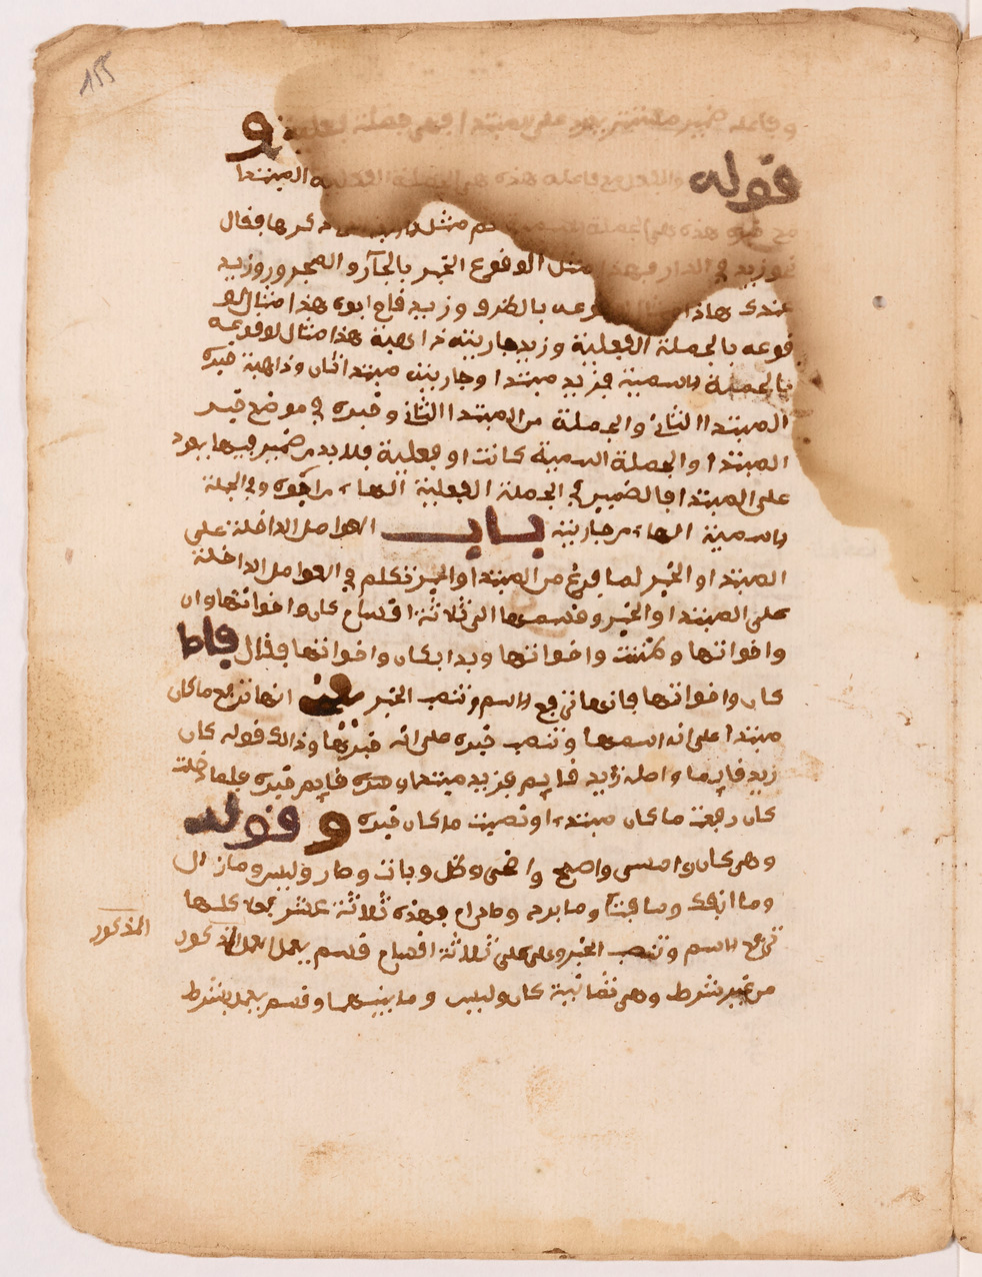 155
وفاعله ضمير مستتر يعود على المبتدا فهي جملة فعلية و
قوله والفعل مع فاعله هذه هي الجملة الفعلية المبتدا
مع خبره هذه هي الجملة ثم مثل ذكرها فقال
نحو زيد في الدار فهذا مثل الوقوع الخبر بالجار والمجرور وزيد
عندك هاذا مثال لوقوعه بالظرف وزيد قام ابوه هذا مثال لو
قوعه بالجملة الفعلية وزيد جاريته ذاهبة هذا مثال لوقوعه
بالجملة الاسمية فزيد مبتدا وجاريته مبتدا ثان وذاهبة خبره
المبتدا الثاني والجملة من المبتدا الثاني وخبره في موضع خبر
المبتدا والجملة الاسمية كانت او فعلية فلا بد من ضمير فيها يعود
على المبتدا فالضمير في الجملة الفعلية الهاء من ابوه وفي الجملة
الاسمية الهاء من جاريته باب العوامل الداخلة على
المبتدا والخبر لما فرغ من المبتدا والخبر تكلم في العوامل الداخلة
على المبتدا والخبر وقسمها الى ثلاثة اقسام كان واخواتها وان
واخواتها وظننت واخواتها وبدا بكان واخواتها فقال فاما
كان واخواتها فانها ترفع الاسم وتنصب الخبر يعني انها ترفع ما كان
مبتدا على انه اسمها وتنصب خبره على انه خبرها وذالك قوله كان
زيد قايما واصله زيد قايم فزيد مبتدا وقايم خبره فلما دخلت
كان رفعت ما كان مبتدء اونصبت ما كان خبره وقوله
وهي كان وامسى واصبح واضحى وظل وبات وصار وليس وما زال
وما انفك وما فتئ وما برح وما دام فهذه ثلاثة عشر فعلا كلها
ترفع الاسم وتنصب الخبر وهي على ثلاثة اقسام قسم يعمل العمل المذكور
المذكور
من غير شرط وهي ثمانية كان وليس وما بينهما وقسم يعمل بشرط